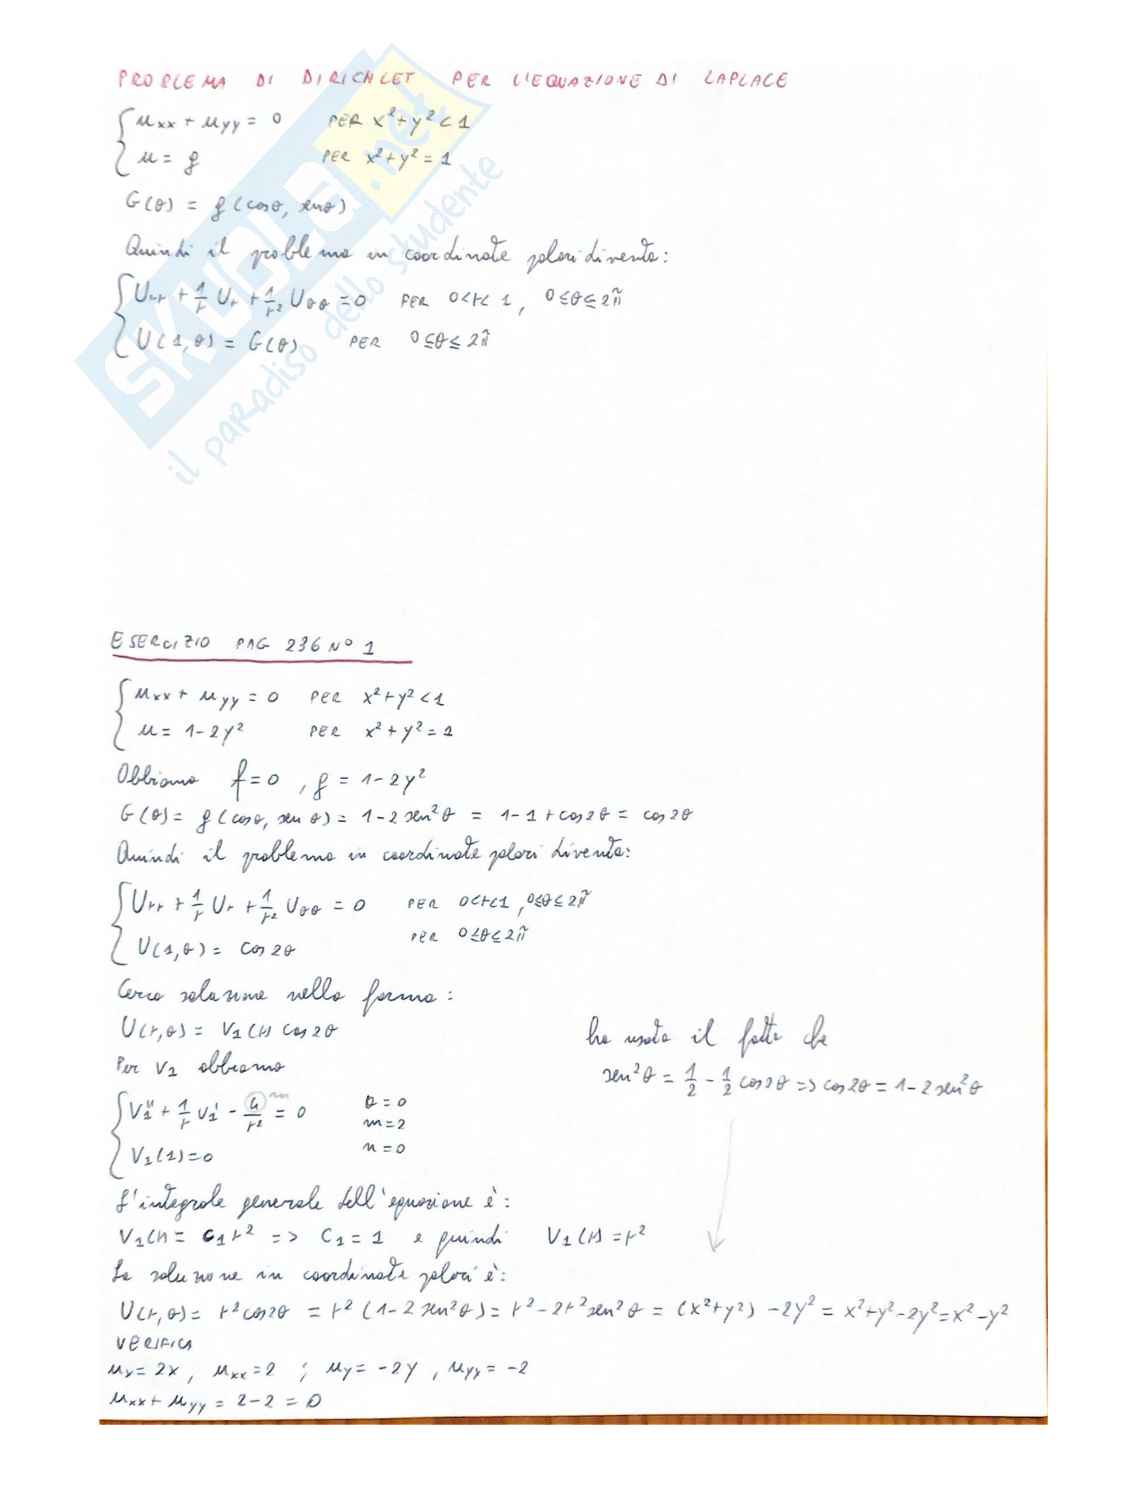 PROBLEMA DI DIRICHLET PER L'EQUAZIONE DI LAPLACE
{ uxx + uyy = 0 PER x²+y² < 1
u = g PER x²+y² = 1
G(θ) = g(cosθ, senθ)
Quindi il problema in coordinate polari diventa:
{ Urr + 1/r Ur + 1/r² Uθθ = 0 PER 0<r<1, 0≤θ≤2π
U(1,θ) = G(θ) PER 0≤θ≤2π
SKUOLA.net
il paradiso dello studente
ESERCIZIO PAG 236 N° 1
{ uxx + uyy = 0 PER x²+y² < 1
u = 1-2y² PER x²+y² = 1
Abbiamo f=0, g = 1-2y²
G(θ) = g(cosθ, senθ) = 1-2sen²θ = 1-1+cos2θ = cos2θ
Quindi il problema in coordinate polari diventa:
{ Urr + 1/r Ur + 1/r² Uθθ = 0 PER 0<r<1, 0≤θ≤2π
U(1,θ) = cos2θ PER 0≤θ≤2π
Cerco soluzione nella forma:
U(r,θ) = V1(r) cos2θ
Per V1 abbiamo
{ V1'' + 1/r V1' - 4/r² = 0
V1(1)=0
Q=0
m=2
n=0
ho usato il fatto che
sen²θ = 1/2 - 1/2 cos2θ => cos2θ = 1-2sen²θ
L'integrale generale dell'equazione è:
V1(r) = C1r² => C1 = 1 e quindi V1(r) = r²
La soluzione in coordinate polari è:
U(r,θ) = r²cos2θ = r²(1-2sen²θ) = r²-2r²sen²θ = (x²+y²) -2y² = x²+y²-2y² = x²-y²
VERIFICA
ux = 2x, uxx = 2 ; uy = -2y, uyy = -2
uxx + uyy = 2-2 = 0